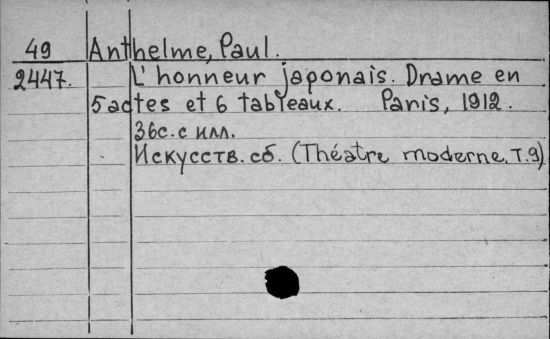 49 Anthelme, Paul.
2447. L'honneur japonais. Drame en
5 actes et 6 tableaux. Paris, 1912.
36с. с илл.
Искусств. сб. (Théatre moderne, T.9)